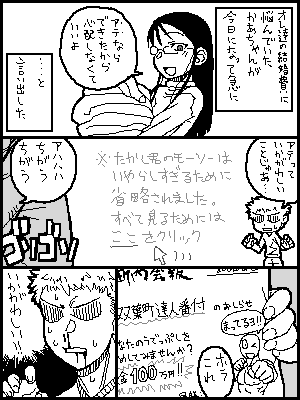 オレ達の結婚費に
悩んでいた
かあちゃんが
今日になって急に
アテなら
できたから
心配しなくて
いいよ
…と
言い出した。
アテって
いかがわしい
ことじゃあ…
※たかし君のモーソーは
いやらしすぎるために
省略されました。
すべて見るためには
ここをクリック
アハハ
ちがう
ちがう
ゴソゴソ
いかがわしい!!
町内会報
双葉町達人番付
のおしらせ
まってるヨ!!
あなたのうでっぷしを
ためしてみませんか?
金100万円!!
ホラ
これ